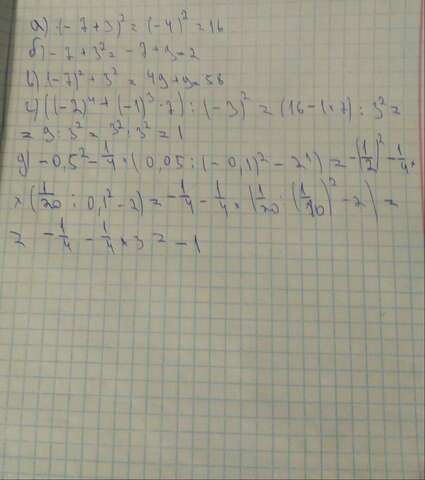 а) (-7+3)² = (-4)² = 16
б) -7+3² = -7+9=2
в) (-7)² + 3² = 49+9=58
г) ((-2)⁴ + (-1)³ · 7) : (-3)² = (16-1×7) : 3² =
= 9 : 3² = 3² : 3² = 1
д) -0,5² - 1/4 · (0,05 : (-0,1)² - 2¹) = -(1/2)² - 1/4 ×
× (1/20 : 0,1² - 2) = -1/4 - 1/4 × (1/20 : (1/10)² - 2) =
= -1/4 - 1/4 × 3 = -1